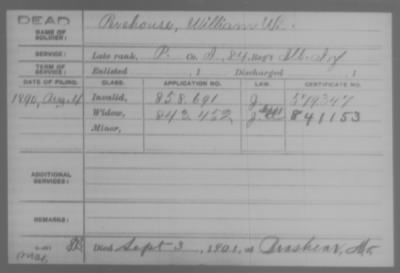 DEAD
NAME OF SOLDIER: Prehouse, William W.
SERVICE: Late rank, P. Co. D, 84, Reg't Ills. Inf
TERM OF SERVICE: Enlisted , 1 Discharged , 1
DATE OF FILING. CLASS. APPLICATION NO. LAW. CERTIFICATE NO.
1890, Aug. Invalid, 858.691 J 579347
Widow, 843.452 J 841153
Minor,
ADDITIONAL SERVICES:
REMARKS:
Died Sept 3, 1901, at Brashear, Mo